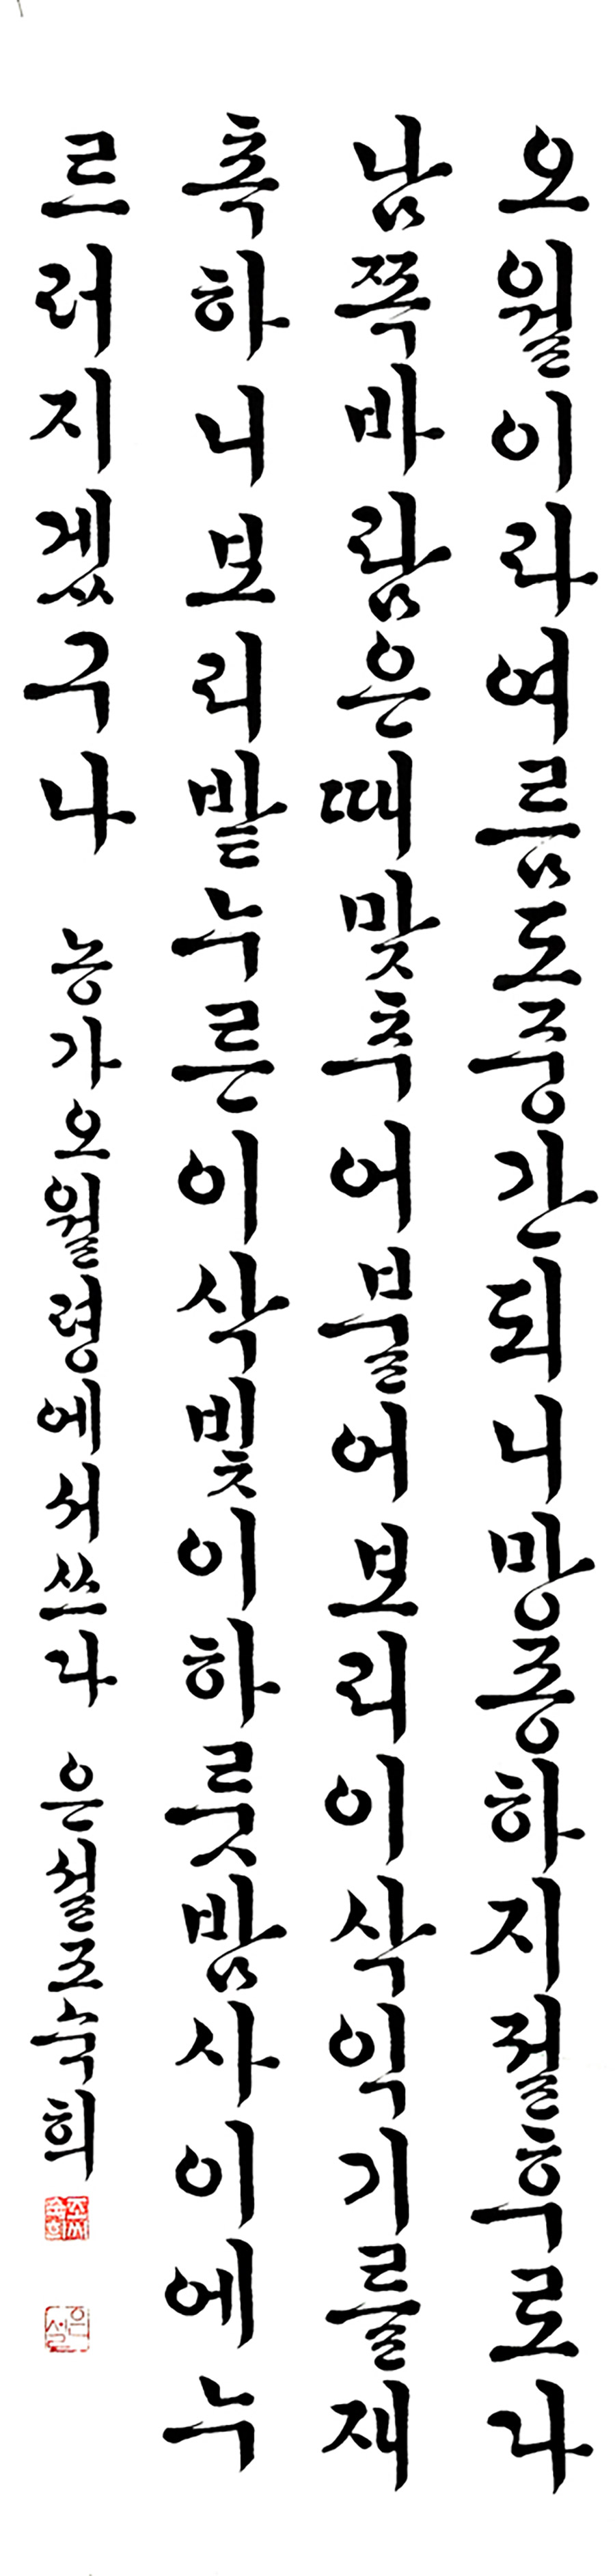 오월이라여름도중간되니망종하지절후로다
남쪽바람은때맞추어불어보리이삭익기를재
촉하니보리밭누른이삭빛이하룻밤사이에누
르러지겠구나 농가오월령에서쓰다 은설조숙희
은설